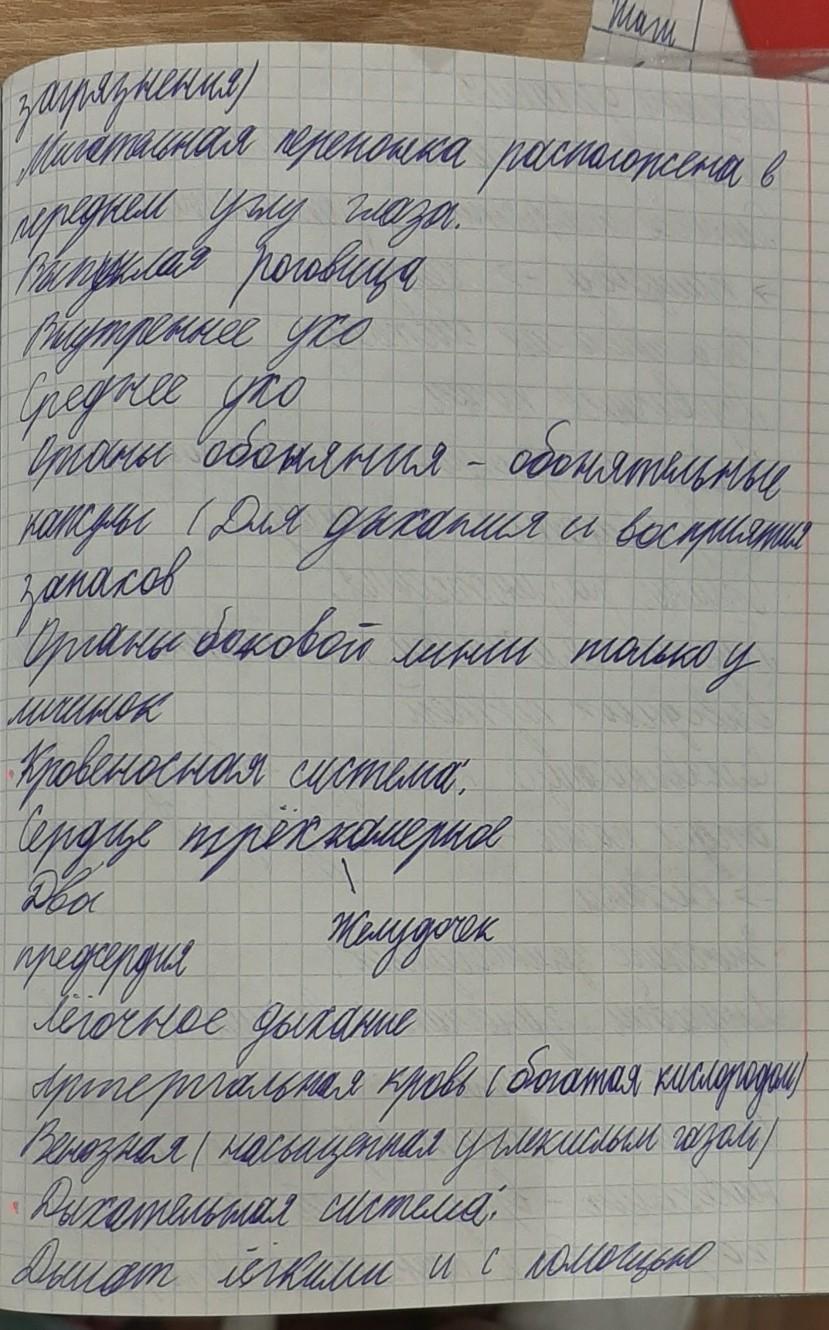 таш
загрязнения)
Мигательная перепонка расположена в
переднем углу глаза.
Выпуклая роговица
Внутреннее ухо
Среднее ухо
Органы обоняния - обонятельные
капсулы (Для дыхания и восприятия
запаков
Органы боковой линии только у
личинок
Кровеносная система:
Сердце трёхкамерное
Два
Желудочек
предсердия
Лёгочное дыхание
Артериальная кровь (богатая кислородом)
Венозная (насыщенная углекислым газом)
Дыхательная система:
Дышат лёгкими и с помощью